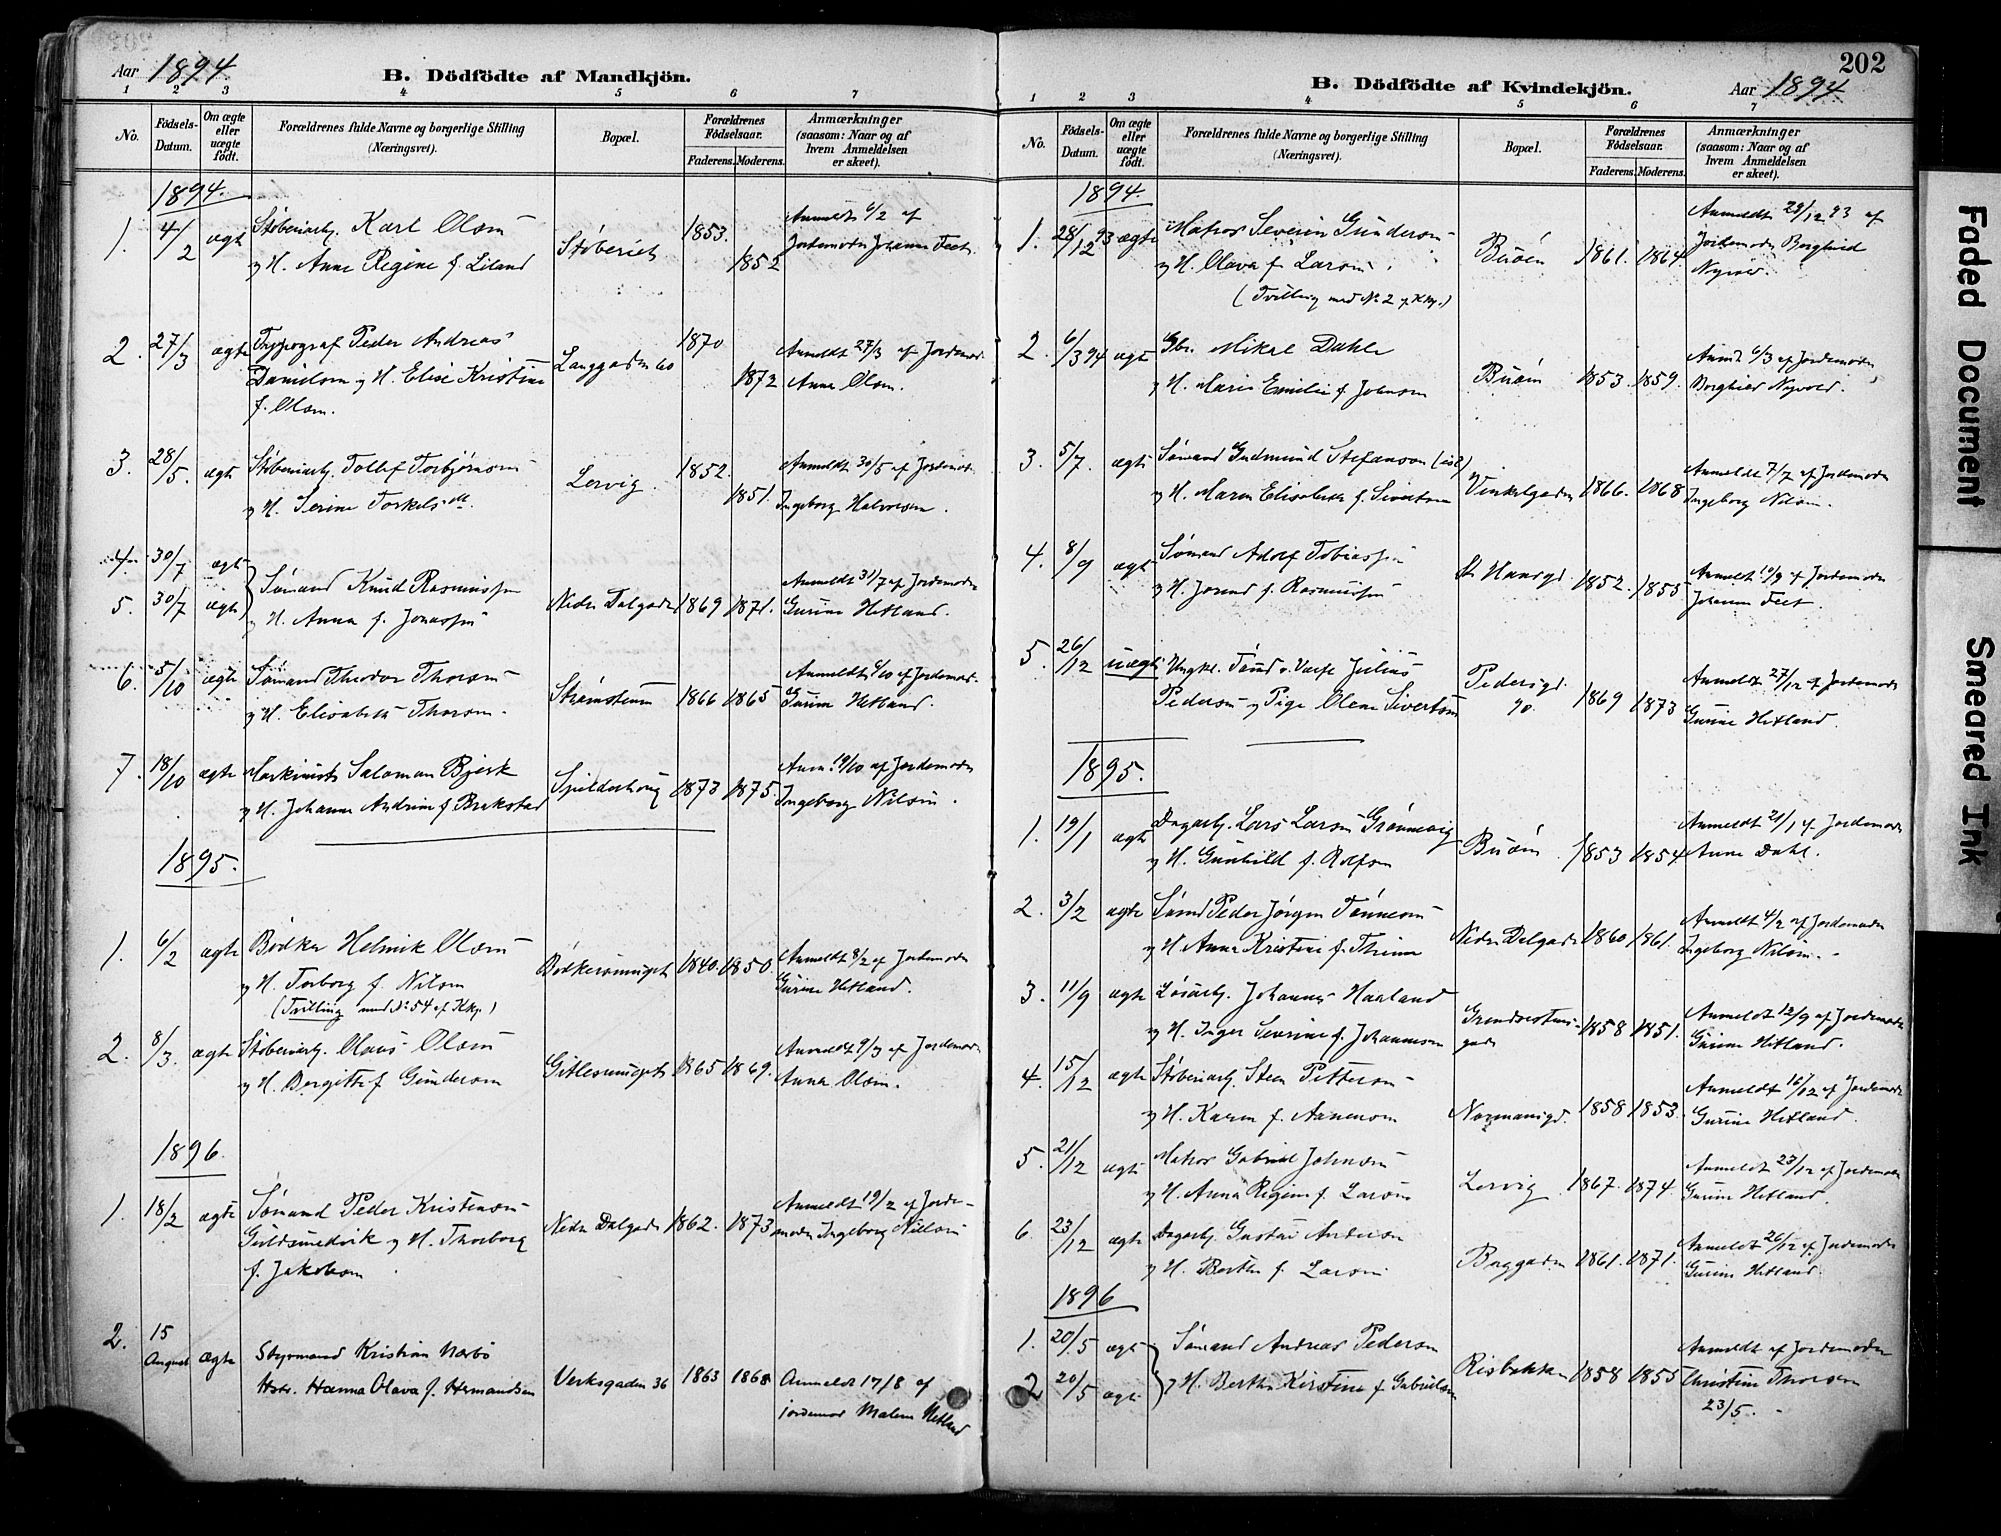 202
Aar 1894
B. Dödfödte af Mandkjön.
1 2 3 4 5 6 7
No.
Födsels-Datum.
Om ægte eller uægte født.
Forældrenes fulde Navne og borgerlige Stilling (Næringsvei).
Bopæl.
Forældrenes Födselsaar.
Faderens. Moderens.
Anmærkninger (saasom: Naar og af hvem Anmeldelsen er skeet).
1894.
1. 4/2 ægte Støberiarb. Karl Olsen 1853. Anmeldt 6/2 af
og H. Anne Regine f. Liland Støberiet 1852 Jordemoder Johanne Feet
2. 27/3 ægte Typograf Peder Andreas 1870 Anmeldt 27/3 af Jordemod.
Danielsen og H. Elise Kristine Langgaden 60 1872 Anna Olsen.
f. Olsen.
3. 28/5. ægte Støberiarb. Tollef Torbjørnsen 1852. Anmeldt 30/5 af Jordemod.
og H. Serine Torkelsdt. Lervig. 1851. Ingeborg Halvorsen.
4. 30/7 ægte
5. 30/7 ægte Sømand Knud Rasmussen Nedre Dalgade 1869 1871. Anmeldt 31/7 af Jordemoder
og H. Anna f. Jonassen Gurine Hetland
6. 5/10 ægte Sømand Theodor Thorsen Anmeldt 6/10 af Jordemod.
og H. Elisabeth Thorsen. Strømsteen 1866 1865 Gurine Hetland.
7. 18/10 ægte Maskinist Salomon Bjerk Anm. 19/10 af Jordemoder
og H. Johanne Andrine f. Brekstad Spilderhaug 1873 1875. Ingeborg Nilsen.
1895.
1. 6/2 ægte Bødker Helmik Olsen Anmeldt 8/2 af Jordemoder
og H. Torborg f. Nilsen 1840. 1850. Gurine Hetland.
(Tvilling med No. 54 af Kkj.)
2. 8/3. ægte Støberiarb. Olaus Olsen Anmeldt 9/3 af Jordemoder
og H. Bergitte f. Gundersen 1865 1869. Anna Olsen.
1896.
1. 18/2 ægte Sømand Peder Kristensen Anmeldt 19/2 af Jorde-
Guldsmedvik og H. Thorborg Nedre Dalgade 1862. 1873 moder Ingeborg Nilsen
f. Jakobsen
2. 15 August ægte Styrmand Kristian Nærbø
Hstr. Hanna Olava f. Hermandsen Verksgaden 36 1863 1868 Anmeldt 17/8 af
jordemor Malene Hetland
B. Dödfödte af Kvindekjön.
Aar 1894
1 2 3 4 5 6 7
No.
Födsels-Datum.
Om ægte eller uægte født.
Forældrenes fulde Navne og borgerlige Stilling (Næringsvei).
Bopæl.
Forældrenes Födselsaar.
Faderens. Moderens.
Anmærkninger (saasom: Naar og af hvem Anmeldelsen er skeet).
1894.
1. 28/12 93 ægte Matros Severin Gundersen Anmeldt 29/12 93 af
og H. Olava f. Larsen. Buøen 1861. 1864. Jordemoder Borghild
(Tvilling med No 2 af Kkj.) Nyvold.
2. 6/3 94 ægte Gbr. Mikal Dahle Anmdt 6/3 af Jordemoder
og H. Marie Emilie f. Johnsen Buøen 1853. 1859. Borghild Nyvold.
3. 5/7. ægte Sømand Gudmund Stefansen Anmeldt 7/7 af Jordemoder
og H. Maren Elisabeth f. Sivertsen Vinkelgaden 1866. 1868 Ingeborg Nilsen.
4. 8/9 ægte Sømand Adolf Tobiassen Anmeldt 10/9 af Jordemoder
og H. Jorund f. Rasmussen St Hansgd. 1852. 1855 Johanne Feet.
5. 26/12 uægte Ungkl. Tønd. v. Værfe Julius Pedersgd. Anmeldt 27/12 af Jordemoder
Pedersen og Pige Olene Sivertsen 90. 1869 1873 Gurine Hetland.
1895.
1. 19/1 ægte Dagarb. Lars Larsen Grønnevig Anmeldt 21/1 af Jordemoder
og H. Gunhild f. Rolfsen Buøen 1853 1854 Anne Dahl.
2. 3/2 ægte Sømd Peder Jørgen Tønnesen Anmeldt 4/2 af Jordemoder
og H. Anna Kristine f. Thime Nedre Dalgade 1860 1861. Ingeborg Nilsen.
3. 11/9 ægte Løsarb. Johannes Haaland Anmeldt 12/9 af Jordemoder
og H. Inger Severine f. Johannesen 1858 1851. Gurine Hetland.
4. 15/12 ægte Støberiarb. Steen Pettersen Anmeldt 16/12 af Jordemoder
og H. Karen f. Aanensen Normansgd. 1858 1853. Gurine Hetland.
5. 21/12 ægte Matros Gabriel Johnsen Anmeldt 23/12 af Jordemoder
og H. Anna Regine f. Larsen Lervig 1867. 1874. Gurine Hetland.
6. 23/12 ægte Dagarb. Gustav Andersen Anmeldt 26/12 af Jordemoder
og H. Berthe f. Larsen 1861. 1871. Gurine Hetland.
1896
1. 20/5 ægte Sømand Andreas Pedersen Anmeldt af Jordemoder
2 20/5 ægte og H. Berthe Kirstine f. Gabrielsen Risbakken 1858 1855 Christine Thorsen
23/5.
Faded Document
Smeared Ink